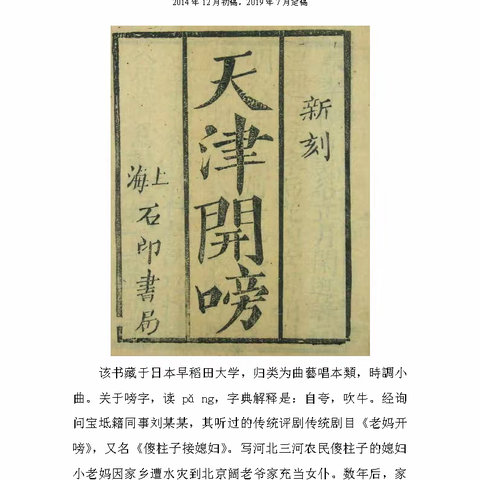 2014 年 12 月初稿，2019 年 7 月定稿
新刻
天津開嗙
上海石印書局
该书藏于日本早稻田大学，归类为曲藝唱本類，時調小
曲。关于嗙字，读 pǎ ng，字典解释是：自夸，吹牛。经询
问宝坻籍同事刘某某，其听过的传统评剧传统剧目《老妈开
嗙》，又名《傻柱子接媳妇》。写河北三河农民傻柱子的媳妇
小老妈因家乡遭水灾到北京阔老爷家充当女仆。数年后，家